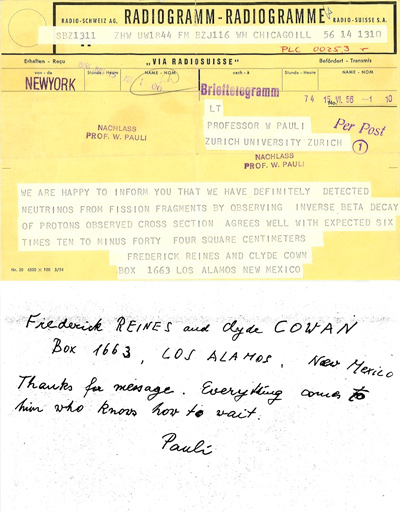 RADIO-SCHWEIZ AG. RADIOGRAMM-RADIOGRAMME RADIO-SUISSE S.A.
SBZ1311 ZHW UW1844 FM BZJ116 WH CHICAGOILL 56 14 1310
PLC 00253
Erhalten - Reçu "VIA RADIOSUISSE" Befördert - Transmis
von - de Stunde - Heure NAME - NOM nach - à Stunde - Heure NAME - NOM
NEWYORK
Brieftelegramm
74 15.VI.56 -1 10
LT
PROFESSOR W PAULI
Per Post
NACHLASS
PROF. W. PAULI
ZURICH UNIVERSITY ZURICH
1
NACHLASS
PROF. W. PAULI
WE ARE HAPPY TO INFORM YOU THAT WE HAVE DEFINITELY DETECTED
NEUTRINOS FROM FISSION FRAGMENTS BY OBSERVING INVERSE BETA DECAY
OF PROTONS OBSERVED CROSS SECTION AGREES WELL WITH EXPECTED SIX
TIMES TEN TO MINUS FORTY FOUR SQUARE CENTIMETERS
FREDERICK REINES AND CLYDE COWN
BOX 1663 LOS ALAMOS NEW MEXICO
Frederick REINES and Clyde COWAN
Box 1663, LOS ALAMOS, New Mexico
Thanks for message. Everything comes to
him who knows how to wait.
Pauli